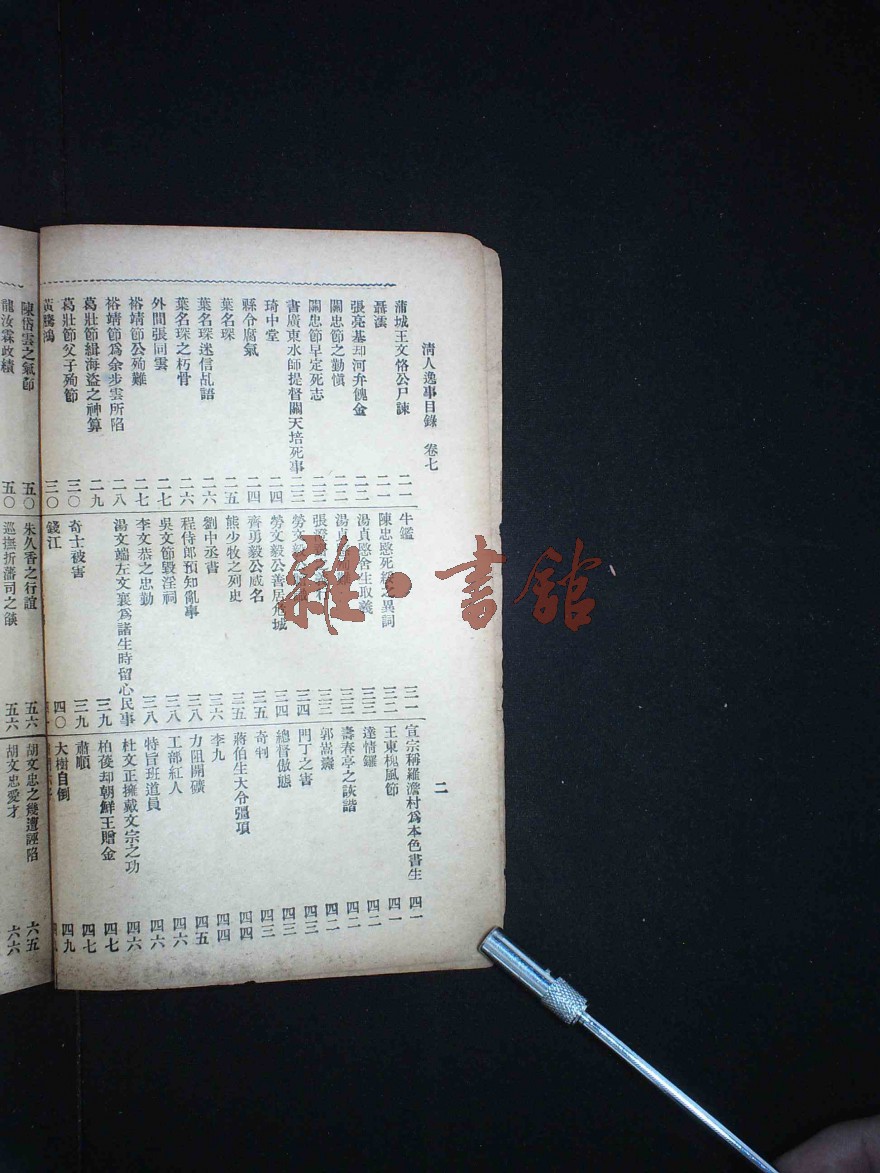 清人逸事目錄 卷七
二
蒲城王文恪公尸諫 二一
聶澐 二一
張亮基却河弁餽金 二二
關忠節之勤慎 二二
關忠節早定死志 二三
書廣東水師提督關天培死事 二三
琦中堂 二四
縣令腐氣 二四
葉名琛 二五
葉名琛迷信乩語 二六
葉名琛之朽骨 二六
外間張同雲 二七
裕靖節公殉難 二七
裕靖節爲余步雲所陷 二八
葛壯節緝海盜之神算 二九
葛壯節父子殉節 三〇
黃騰鴻 三〇
牛鑑 三一
陳忠愍死綏之異詞 三二
湯貞愍舍生取義 三三
湯貞 三三
張 三三
勞文 三四
勞文毅公善居危城 三四
齊勇毅公威名 三五
熊少牧之列史 三五
劉中丞書 三六
程侍郎預知亂事 三八
吳文節毀淫祠 三八
李文恭之忠勤 三八
湯文端左文襄爲諸生時留心民事 三九
奇士被害 三九
錢江 四〇
宣宗稱羅澹村爲本色書生 四一
王東槐風節 四一
達情鑼 四二
壽春亭之詼諧 四二
郭嵩燾 四三
門丁之害 四三
總督傲態 四三
奇判 四三
蔣伯生大令彊項 四四
李九 四四
力阻開礦 四五
工部紅人 四六
特旨班道員 四六
杜文正擁戴文宗之功 四六
柏葰却朝鮮王贈金 四七
肅順 四七
大樹自倒 四九
陳岱雲之氣節 五〇
龍汝霖政績 五〇
朱久香之行誼 五六
巡撫折藩司之燄 五六
胡文忠之幾遭誣陷 六五
胡文忠愛才 六六
雜·書館